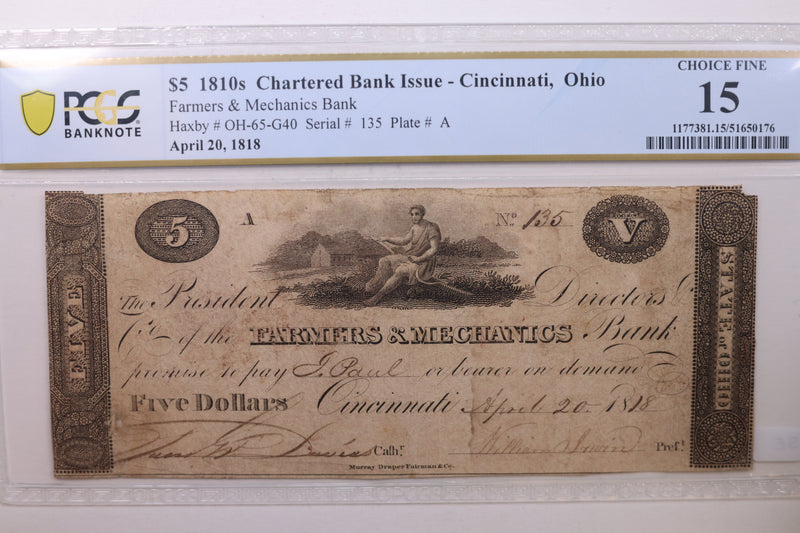 $5 1810s Chartered Bank Issue - Cincinnati, Ohio
Farmers & Mechanics Bank
Haxby # OH-65-G40 Serial # 135 Plate # A
April 20, 1818
PCGS
BANKNOTE
CHOICE FINE
15
1177381.15/51650176
5 A Nº 135 V
FIVE
STATE of OHIO
The President Directors &
Cº of the FARMERS & MECHANICS Bank
promise to pay J. Paul or bearer on demand
Five Dollars Cincinnati April 20 1818
Cashr. William Irwin Prest.
Murray Draper Fairman & Co.